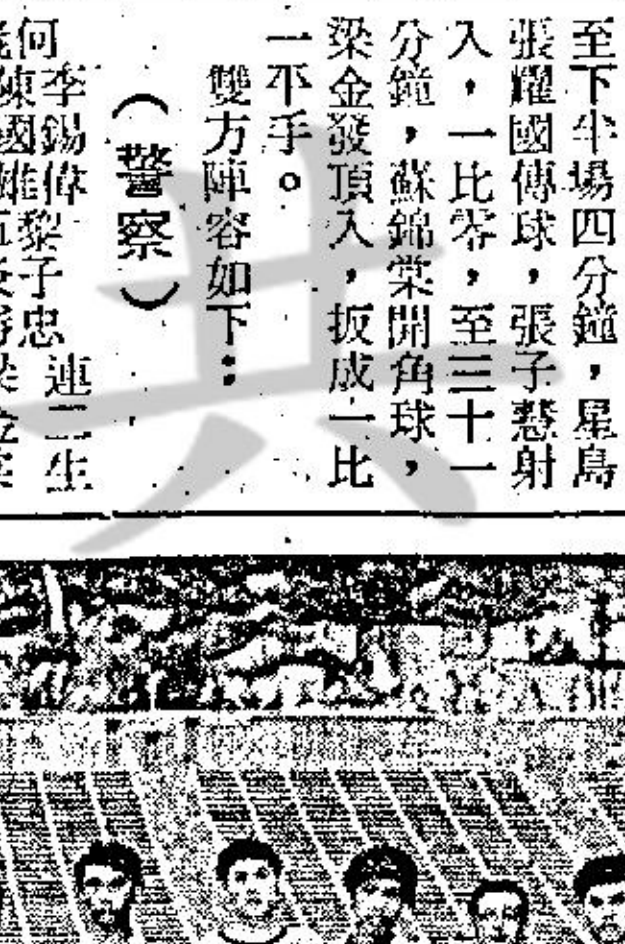 至下半場四分鐘，星島
張耀國傳球，張子慧射
入，一比零，至三十一
分鐘，蘇錦棠開角球，
梁金發頂入，扳成一比
一不手。
雙方陣容如下：
（警察）
連二生
李錫偉黎子忠
何陳國雄
共